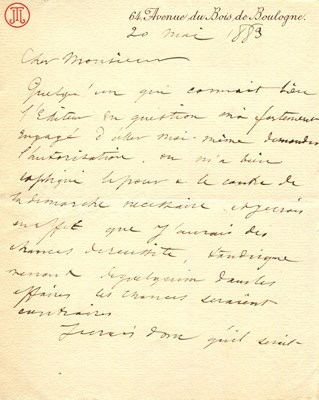 64. Avenue du Bois de Boulogne.
20 mai 1883
Cher Monsieur
Quelqu'un qui connait bien
l'Editeur en question m'a fortement
engagé d'aller moi-même demander
l'autorisation, on m'a bien
expliqué le pour & le contre de
la demarche necessaire, et je crois
en effet que j'aurais des
chances de reussite, tandisque
venant de quelqu'un dans les
affaires les chances seraient
contraires
Je crois donc qu'il serait